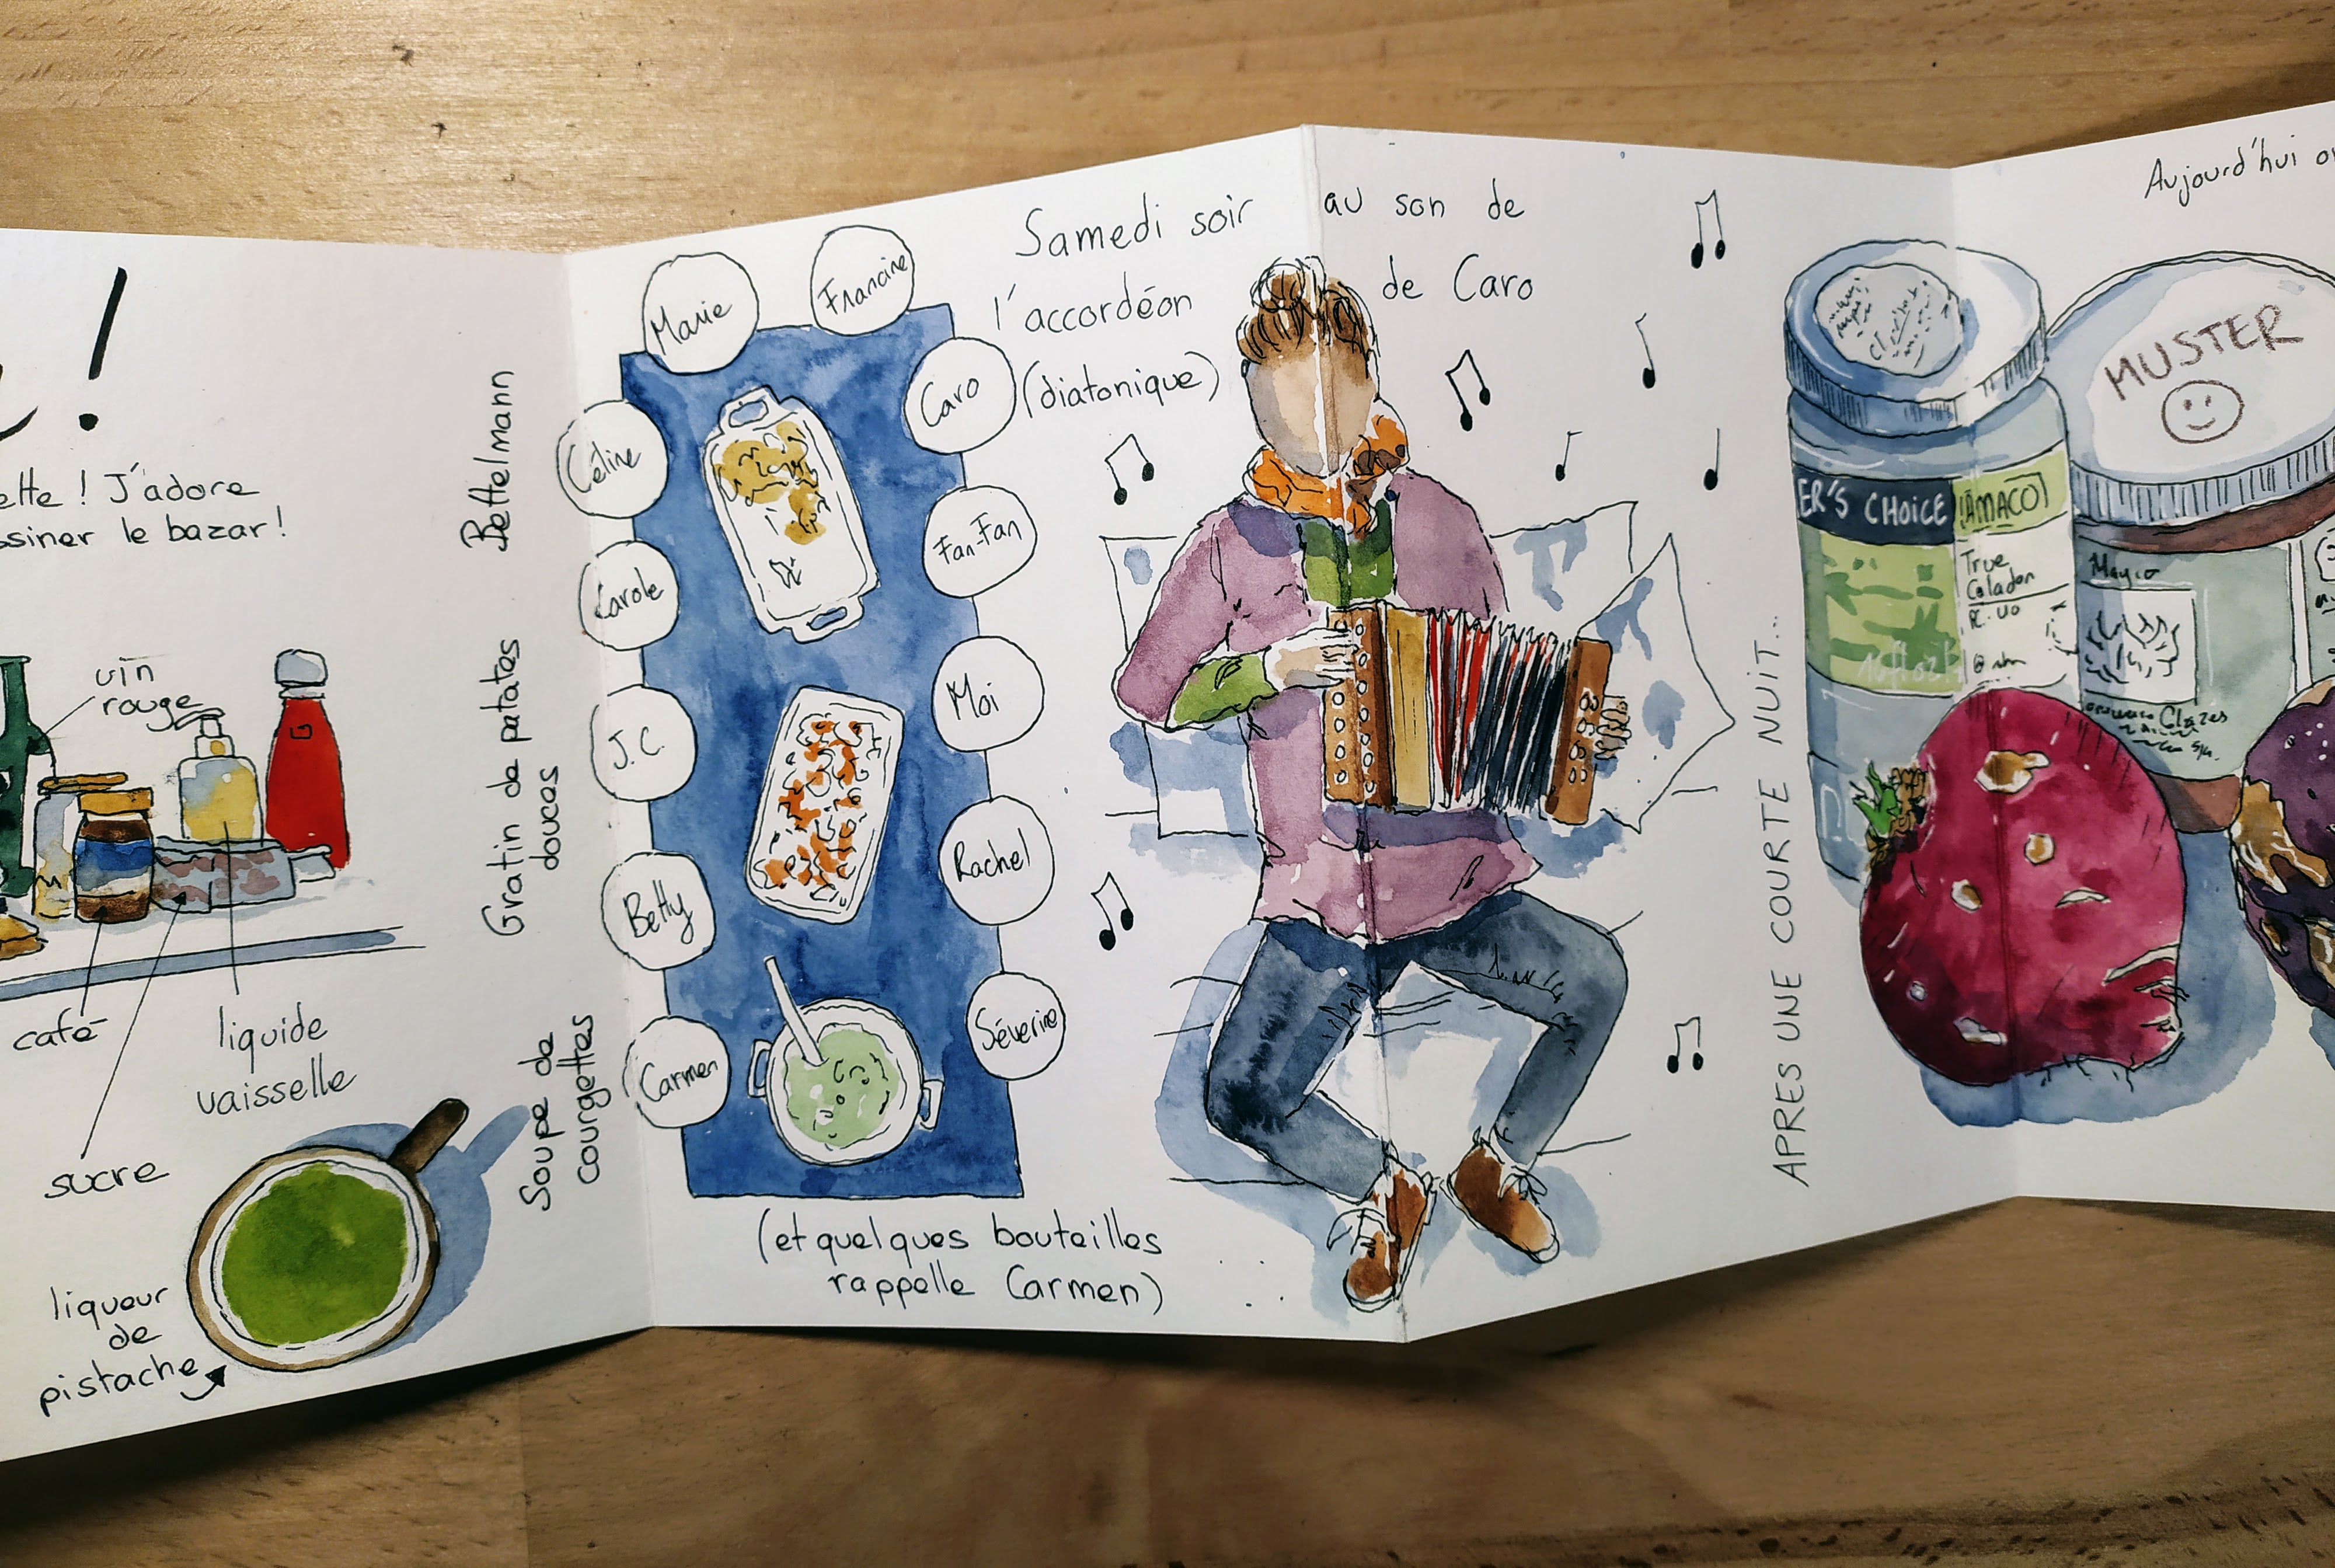 !
J'adore
le bazar!
vin
rouge
café
sucre
liquide
vaisselle
liqueur
de
pistache
Bettelmann
Gratin de patates
douces
Soupe de
courgettes
Marie
Francine
Céline
Caro
Carole
Fan-Fan
J.C.
Moi
Betty
Rachel
Carmen
Séverine
(et quelques bouteilles
rappelle Carmen)
Samedi soir au son de
l'accordéon de Caro
(diatonique)
APRES UNE COURTE NUIT...
ER'S CHOICE
AMACO
True
Celadon
Mayco
Glazes
MUSTER
Aujourd'hui